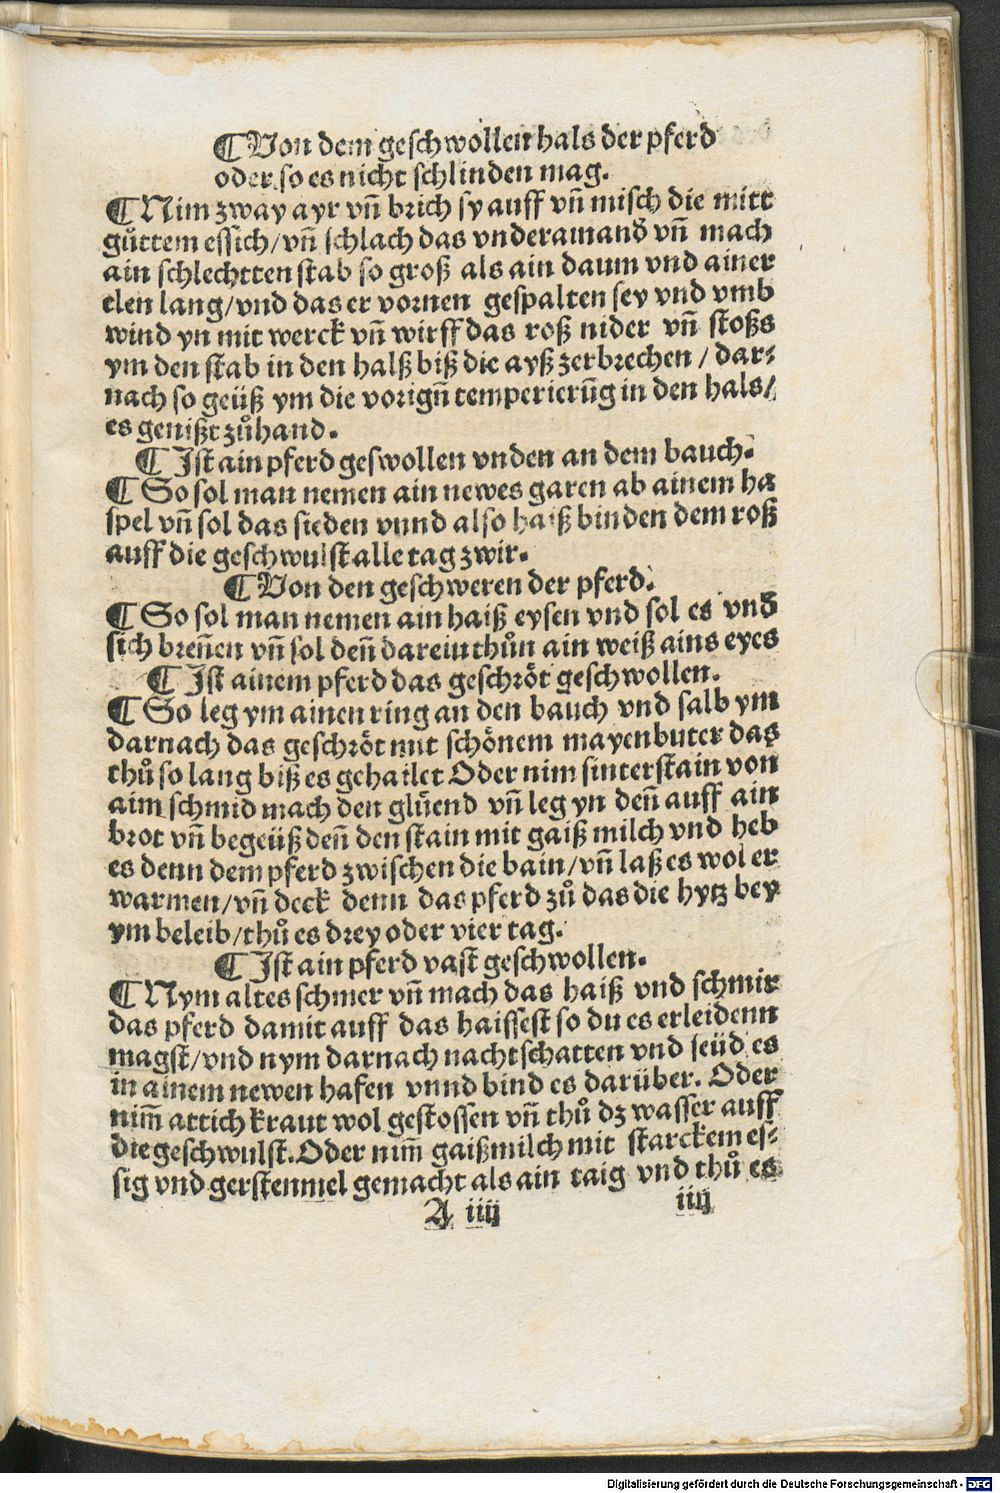 ¶ Von dem geschwollen hals der pferd
oder so es nicht schlinden mag.
¶ Nim zway ayr vñ brich sy auff vñ misch die mitt
gůttem essich/vñ schlach das vnderainand̄ vñ mach
ain schlechtten stab so groß als ain daum vnd ainer
elen lang/vnd das er vornen gespalten sey vnd vmb
wind yn mit werck vñ wirff das roß nider vñ stoßs
ym den stab in den halß biß die ayß zerbrechen / dar⸗
nach so geüß ym die vorigñ temperierūg in den hals/
es genißt zůhand.
¶ Ist ain pferd geswollen vnden an dem bauch.
¶ So sol man nemen ain newes garen ab ainem ha
spel vñ sol das sieden vnnd also haiß binden dem roß
auff die geschwulst alle tag zwir.
¶ Von den geschweren der pferd.
¶ So sol man nemen ain haiß eysen vnd sol es vnd̄
sich breñen vñ sol deñ darein thůn ain weiß ains eyes
¶ Ist ainem pferd das geschröt geschwollen.
¶ So leg ym ainen ring an den bauch vnd salb ym
darnach das geschröt mit schönem mayenbuter das
thů so lang biß es gehailet Oder nim sinterstain von
aim schmid mach den glüend vñ leg yn deñ auff ain
brot vñ begeüß deñ den stain mit gaiß milch vnd heb
es denn dem pferd zwischen die bain/vñ laß es wol er
warmen/vñ deck denn das pferd zů das die hytz bey
ym beleib/thů es drey oder vier tag.
¶ Ist ain pferd vast geschwollen.
¶ Nym altes schmer vñ mach das haiß vnd schmir
das pferd damit auff das haissest so du es erleidenn
magst/vnd nym darnach nachtschatten vnd seüd es
in ainem newen hafen vnnd bind es darüber. Oder
nim̄ attich kraut wol gestossen vñ thů dz wasser auff
die geschwulst. Oder nim̄ gaißmilch mit starckem es⸗
sig vnd gerstenmel gemacht als ain taig vnd thů es
A iiij iiij
Digitalisierung gefördert durch die Deutsche Forschungsgemeinschaft - DFG